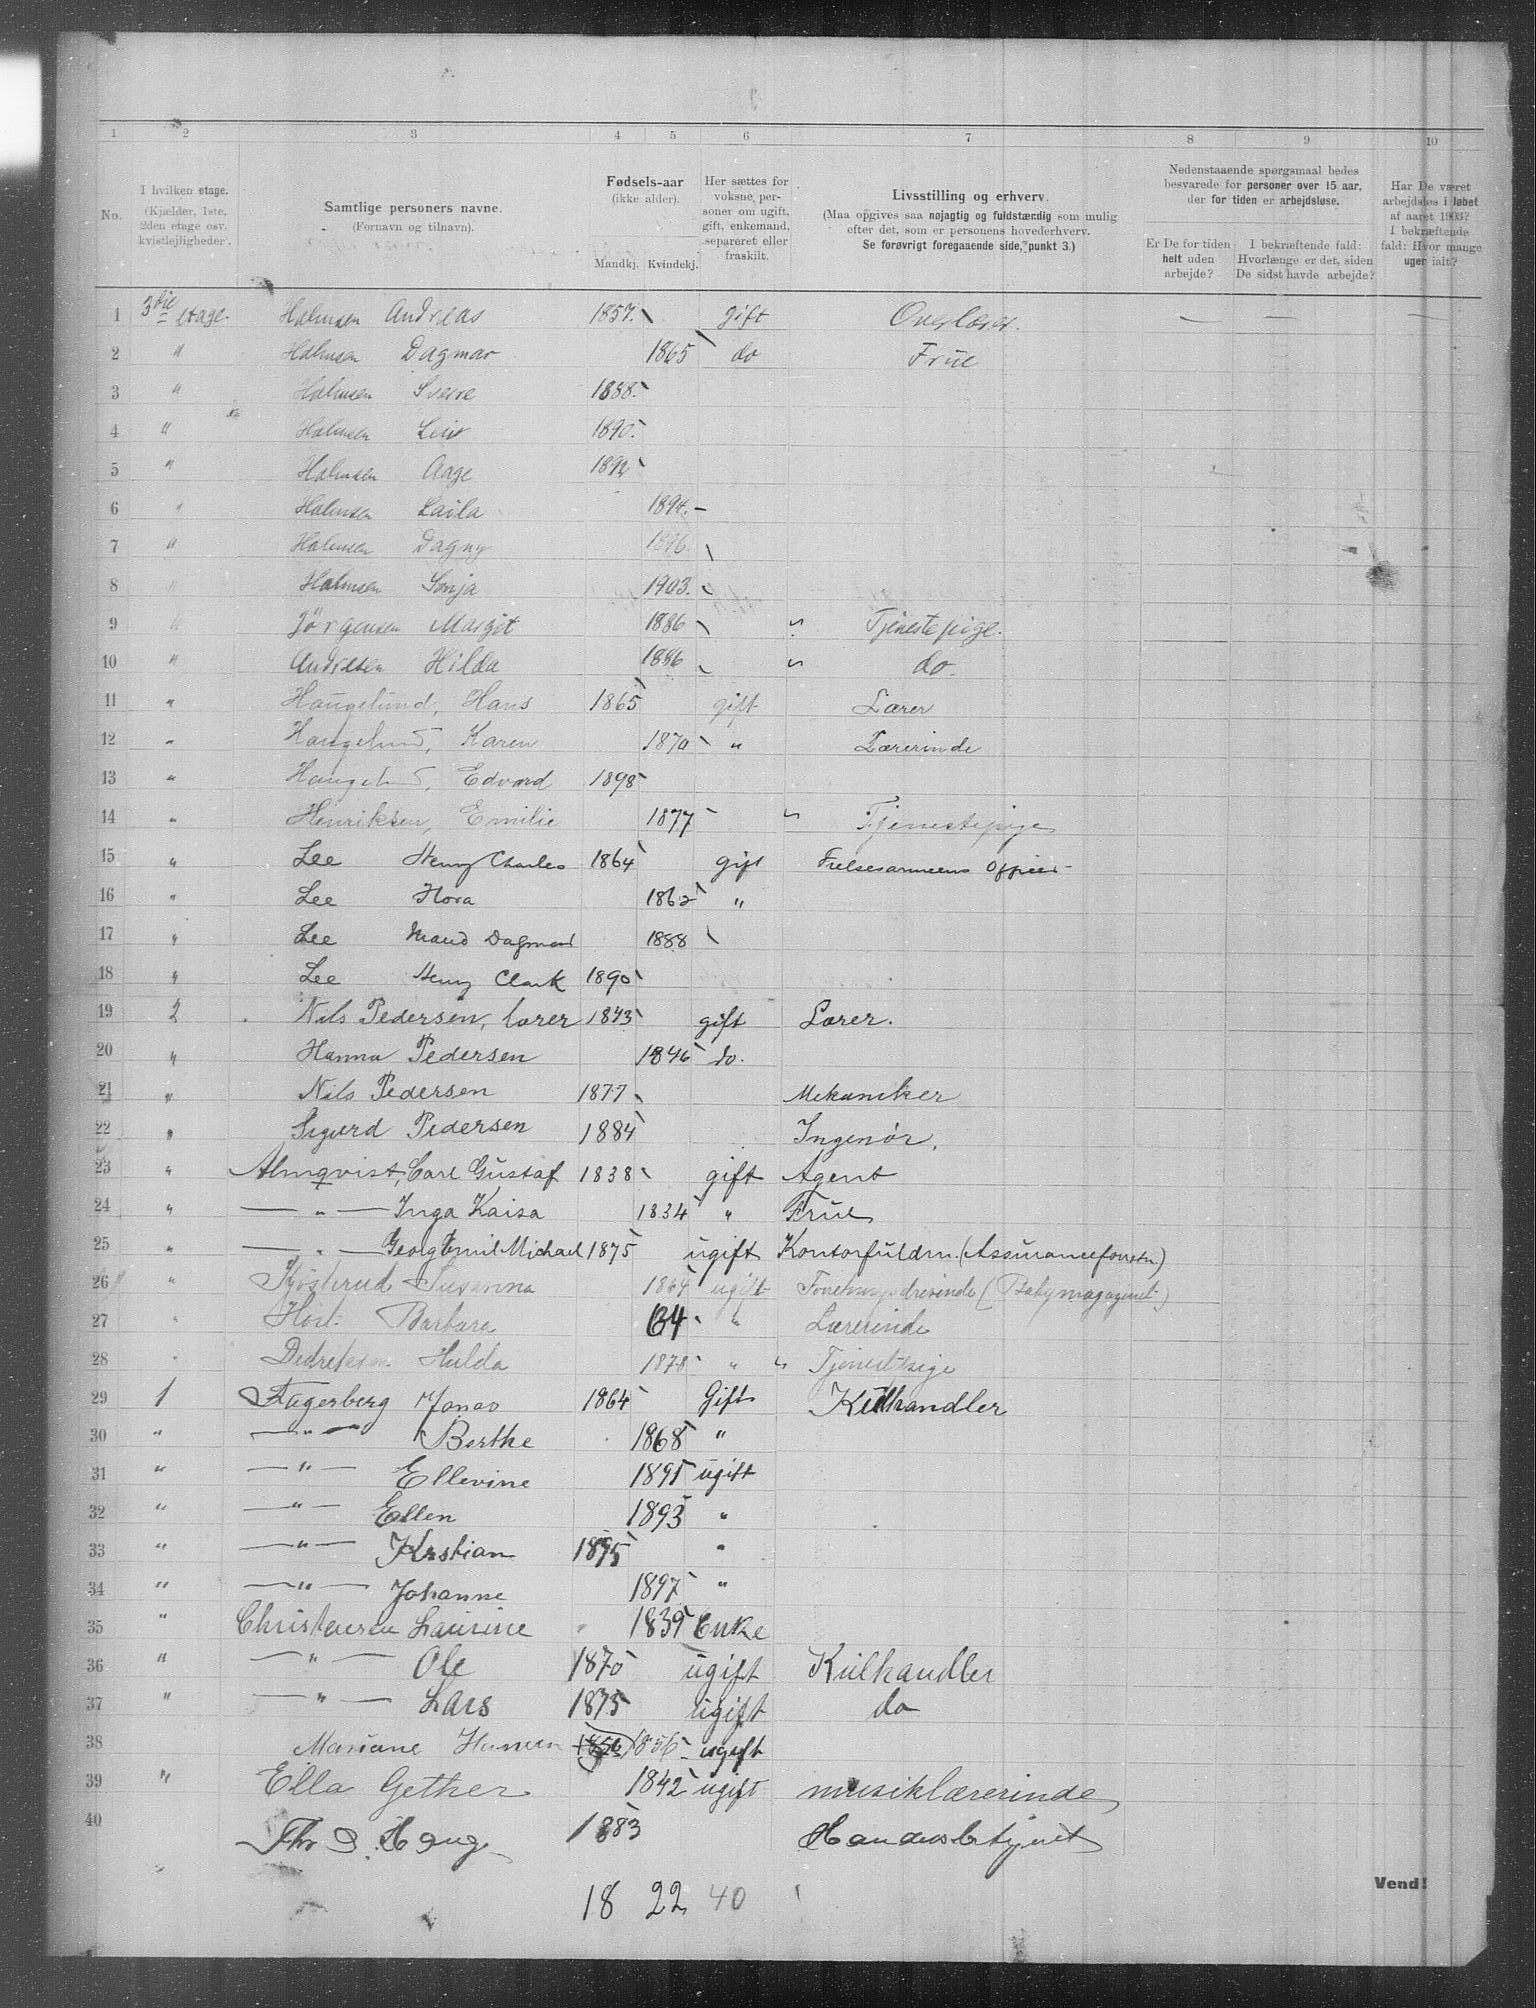 1 2 3 4 5 6 7 8 9 10
No.
I hvilken etage.
(Kjælder, 1ste, 2den etage osv. kvistlejligheder).
Samtlige personers navne.
(Fornavn og tilnavn).
Fødsels-aar
(ikke alder).
Mandkj. Kvindekj.
Her sættes for voksne personer om ugift, gift, enkemand, separeret eller fraskilt.
Livsstilling og erhverv.
(Maa opgives saa nøjagtig og fuldstændig som mulig efter det, som er personens hovederhverv.
Se forøvrigt foregaaende side, punkt 3.)
Nedenstaaende spørgsmaal bedes besvarede for personer over 15 aar, der for tiden er arbejdsløse.
Er De for tiden helt uden arbejde?
I bekræftende fald: Hvorlænge er det, siden De sidst havde arbejde?
Har De været arbejdsløs i løbet af aaret 1903? I bekræftende fald: Hvor mange uger ialt?
1 3die etage. Halmsen Andreas 1857. gift Overlærer. — — —
2 " Halmsen Dagmar 1865 do Frue
3 " Halmsen Sverre 1888.
4 " Halmsen Leiv 1890.
5 " Halmsen Aage 1892
6 " Halmsen Laila 1894.
7 " Halmsen Dagny 1896.
8 " Halmsen Sonja 1903.
9 " Jörgensen Margit 1886 " Tjenestepige.
10 " Andresen Hilda 1886 " do.
11 " Haugelund, Hans 1865 gift Lærer
12 " Haugelund, Karen 1870 " Lærerinde
13 " Haugelund, Edvard 1898
14 " Henriksen, Emilie 1877 " Tjenestepige
15 " Lee Henry Charles 1864 gift Frelsesarmeens Officer
16 " Lee Flora 1862 "
17 " Lee Maud Dagmar 1888
18 " Lee Henry Clark 1890
19 2 Nils Pedersen, lærer 1843 gift Lærer.
20 " Hanna Pedersen 1846 do.
21 " Nils Pedersen 1877 Mekaniker
22 " Sigurd Pedersen 1884 Ingenør.
23 " Almqvist, Carl Gustaf 1838 gift Agent
24 " — " — Inga Kaisa 1834 " Frue
25 " — " — Georg Emil Michael 1875 ugift Kontorfuldm. (Assuranceforretn)
26 " Susanna 1864 ugift (Babymagazinet)
27 " Höst Barbara 64 " Lærerinde
28 " Hulda 1878 " " Tjenestepige
29 1 Fagerberg Jonas 1864 Gift Kulhandler
30 " — " — Berthe 1868 "
31 " — " — Ellevine 1891 ugift
32 " — " — Ellen 1893 "
33 " — " — Kristian 1895 "
34 " — " — Johanne 1897 "
35 " Christensen Laurine 1839 Enke
36 " — " — Ole 1870 ugift Kulhandler
37 " — " — Lars 1875 ugift do
38 Mariane Hansen 1856 1856 ugift
39 " Ella Gether 1842 ugift musiklærerinde
40 1883 Handelsbetjent
18 22 40
Vend!